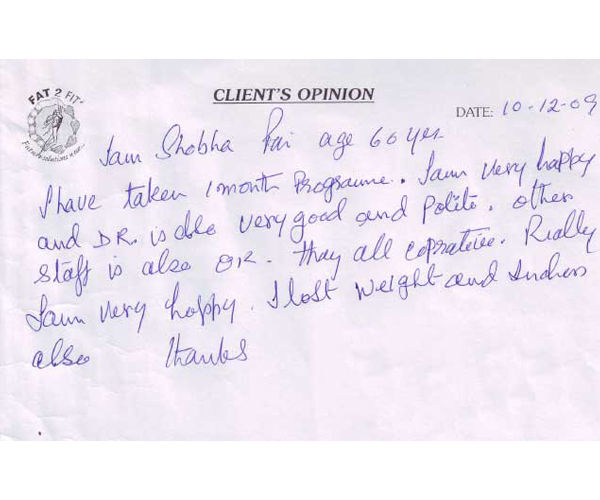 FAT 2 FIT
CLIENT'S OPINION
DATE: 10-12-09
Iam Shobha Pai age 60 yrs
I have taken 1 month Programe. Iam very happy
and DR. is also very good and Polite. other
staff is also OK. thay all coprative. Really
Iam very happy. I lost weight and Inches
also thanks